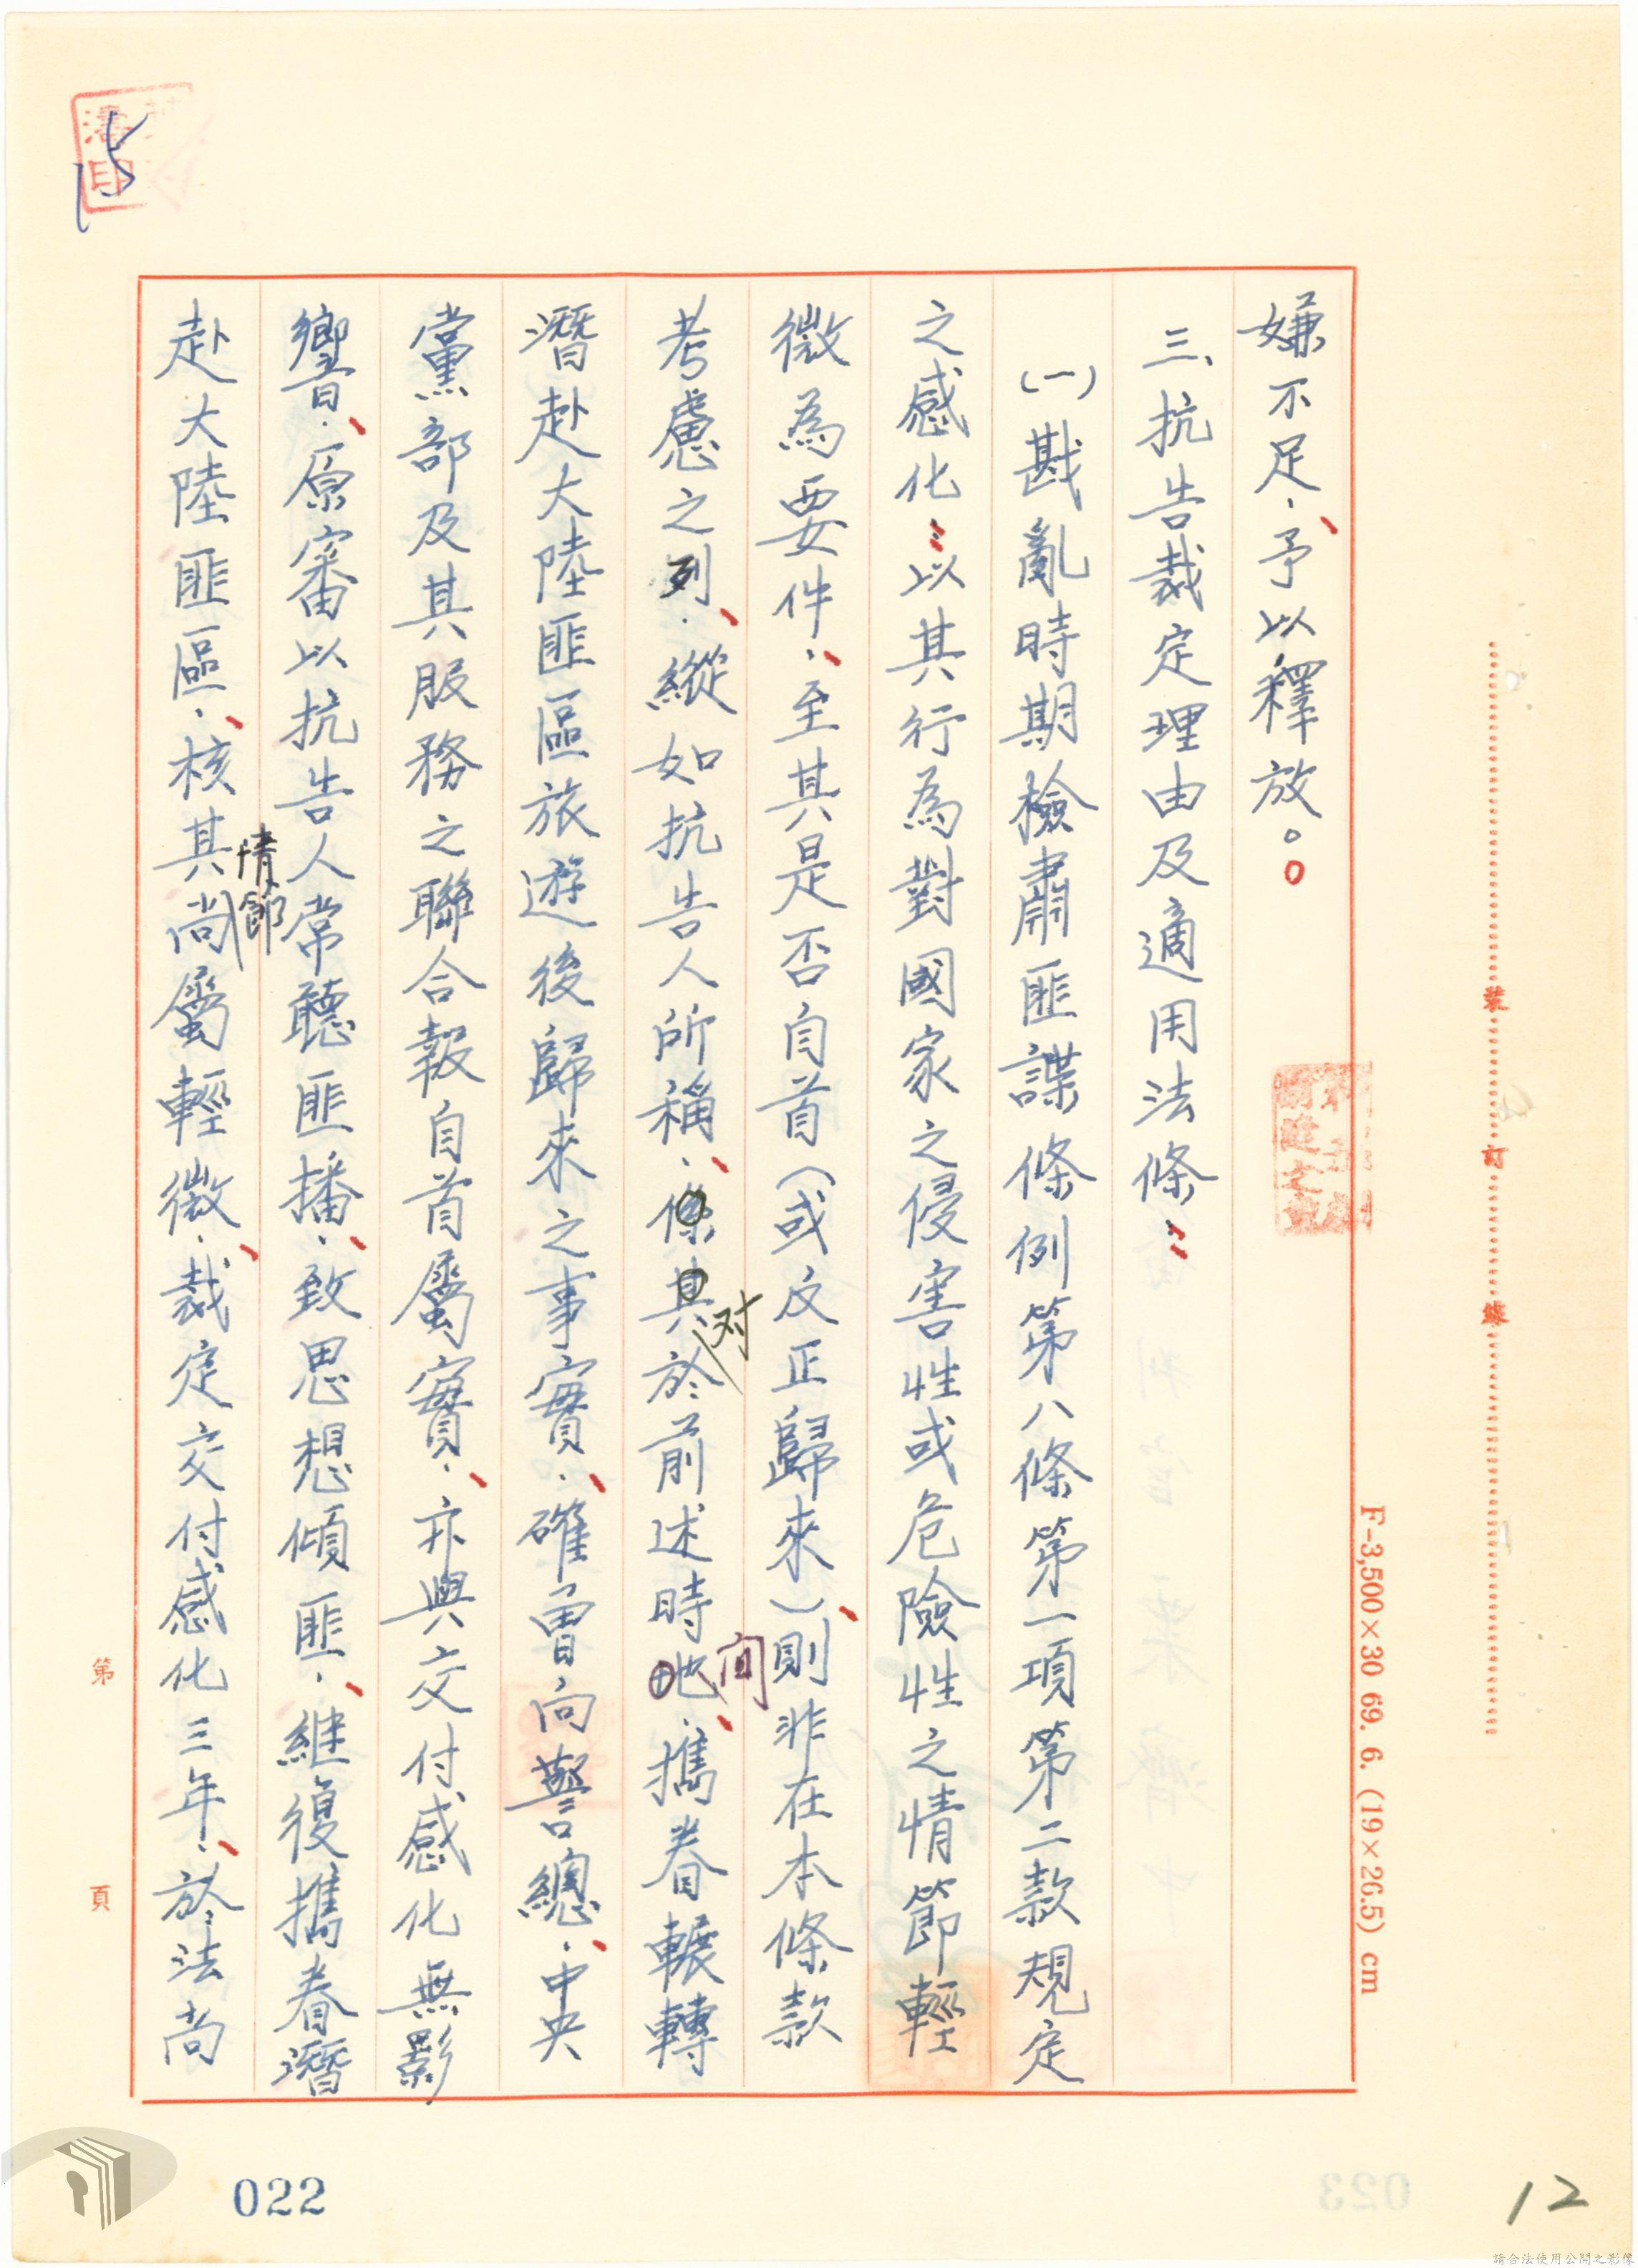 嫌不足，予以釋放。
三、抗告裁定理由及適用法條：
（一）戡亂時期檢肅匪諜條例第八條第一項第二款規定
之感化：以其行為對國家之侵害性或危險性之情節輕
微為要件，至其是否自首（或反正歸來），則非在本條款
考慮之列，縱如抗告人所稱，係其於前述時地，攜眷輾轉
对
间
潛赴大陸匪區旅遊後歸來之事實，確曾向警總，中央
黨部及其服務之聯合報自首屬實，亦與交付感化無影
響，原審以抗告人常聽匪播，致思想傾匪，繼復攜眷潛
情節
赴大陸匪區，核其尚屬輕微，裁定交付感化三年，於法尚
裝
訂
線
F-3,500×30 69. 6. (19×26.5) cm
第 頁
15
022
023
12
請合法使用公開之影像